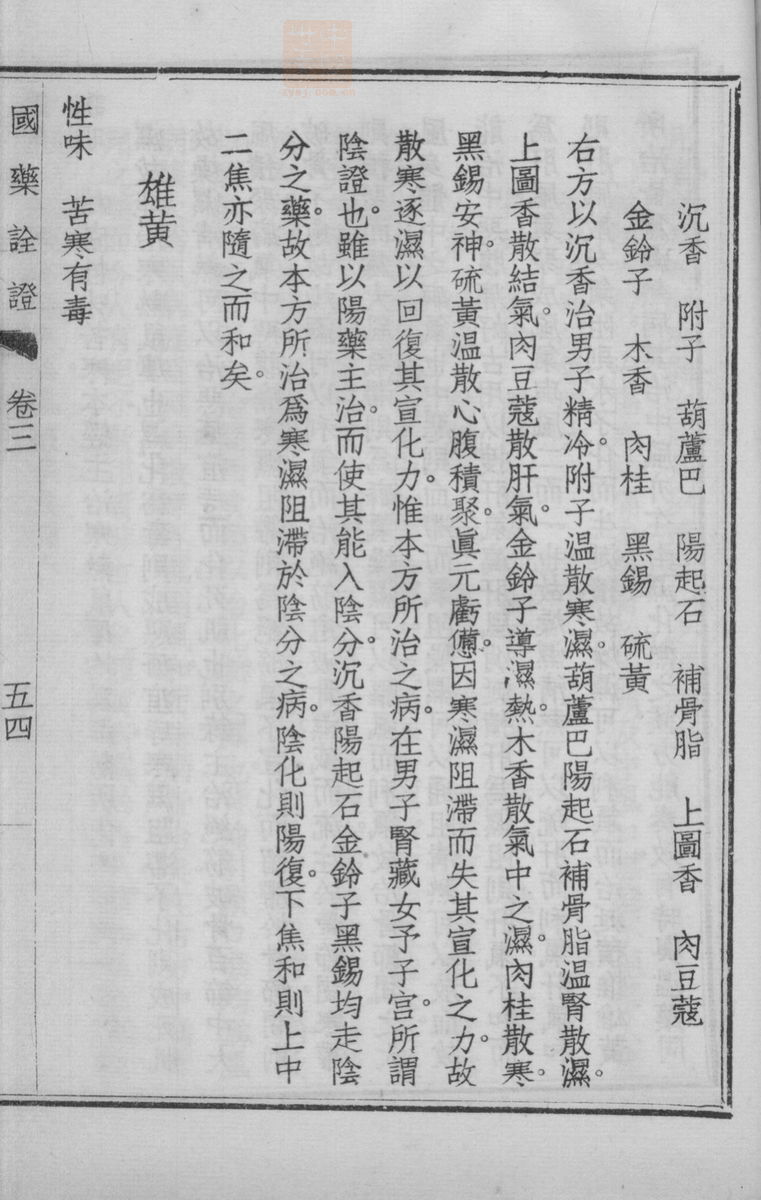 沉香　附子　葫蘆巴　陽起石　補骨脂　上圖香　肉豆蔻
金鈴子　木香　肉桂　黑錫　硫黃
右方以沉香治男子精冷。附子温散寒濕。葫蘆巴陽起石補骨脂温腎散濕。
上圖香散結氣。肉豆蔻散肝氣。金鈴子導濕熱。木香散氣中之濕。肉桂散寒。
黑錫安神。硫黃温散心腹積聚。眞元虧憊。因寒濕阻滯而失其宣化之力。故
散寒逐濕以回復其宣化力。惟本方所治之病。在男子腎藏女予子宫。所謂
陰證也。雖以陽藥主治。而使其能入陰分。沉香陽起石金鈴子黑錫均走陰
分之藥。故本方所治爲寒濕阻滯於陰分之病。陰化則陽復。下焦和則上中
二焦亦隨之而和矣。
雄黃
性味　苦寒有毒
國藥詮證　卷三　五四